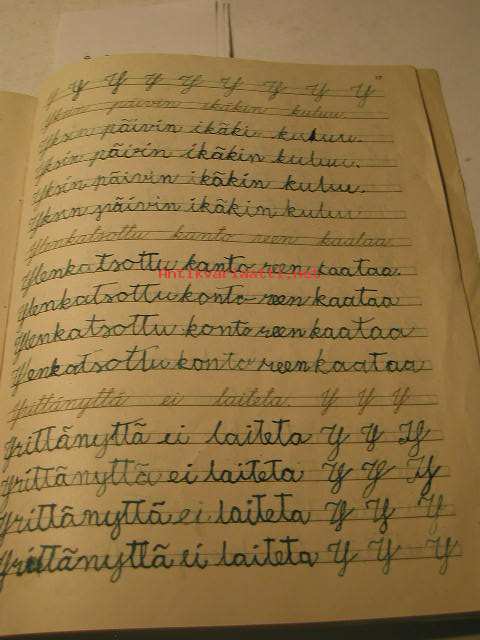 Y Y Y Y Y Y Y Y Y
Yksin päivin ikäkin kuluu.
Yksin päivin ikäki kuluu.
Yksin päivin ikäkin kuluu.
Yksin päivin ikäkin kuluu.
Yksin päivin ikäkin kuluu
Ylenkatsottu kanto reen kaataa.
Ylenkatsottu kanto reen kaataa.
Antikvariaatti.net
Ylenkatsottu konto reen kaataa
Ylenkatsottu konto reen kaataa
Ylenkatsottu konto reen kaataa
Yrittänyttä ei laiteta. Y Y Y
Yrittänyttä ei laiteta Y Y Y
Yrittänyttä ei laiteta Y Y Y
Yrittänyttä ei laiteta Y Y Y
Yrittänyttä ei laiteta Y Y Y